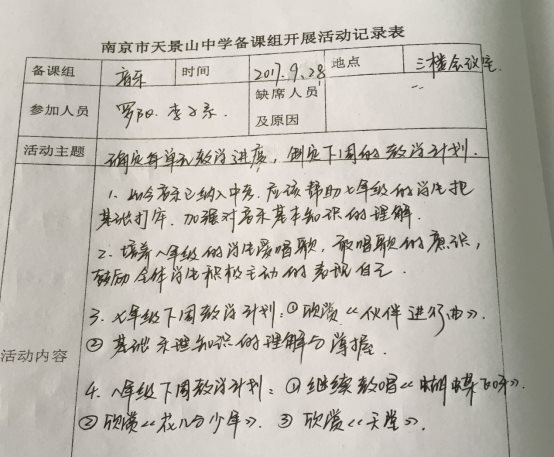 南京市天景山中学备课组开展活动记录表
备课组 音乐 时间 2017.9.28 地点 三楼会议室
参加人员 罗阳 李子 缺席人员及原因
活动主题 确定每单元教学进度，制定下周的教学计划.
活动内容
1. 如今音乐已纳入中考，应该帮助七年级的学生把
基础打牢，加强对音乐基本知识的理解.
2. 培养八年级的学生爱唱歌，敢唱歌的意识，
鼓励全体学生积极主动的表现自己.
3. 七年级下周教学计划：①欣赏《伙伴进行曲》.
② 基础乐理知识的理解与掌握.
4. 八年级下周教学计划：①继续教唱《蝴蝶飞呀》.
②欣赏《花儿与少年》. ③ 欣赏《天堂》.